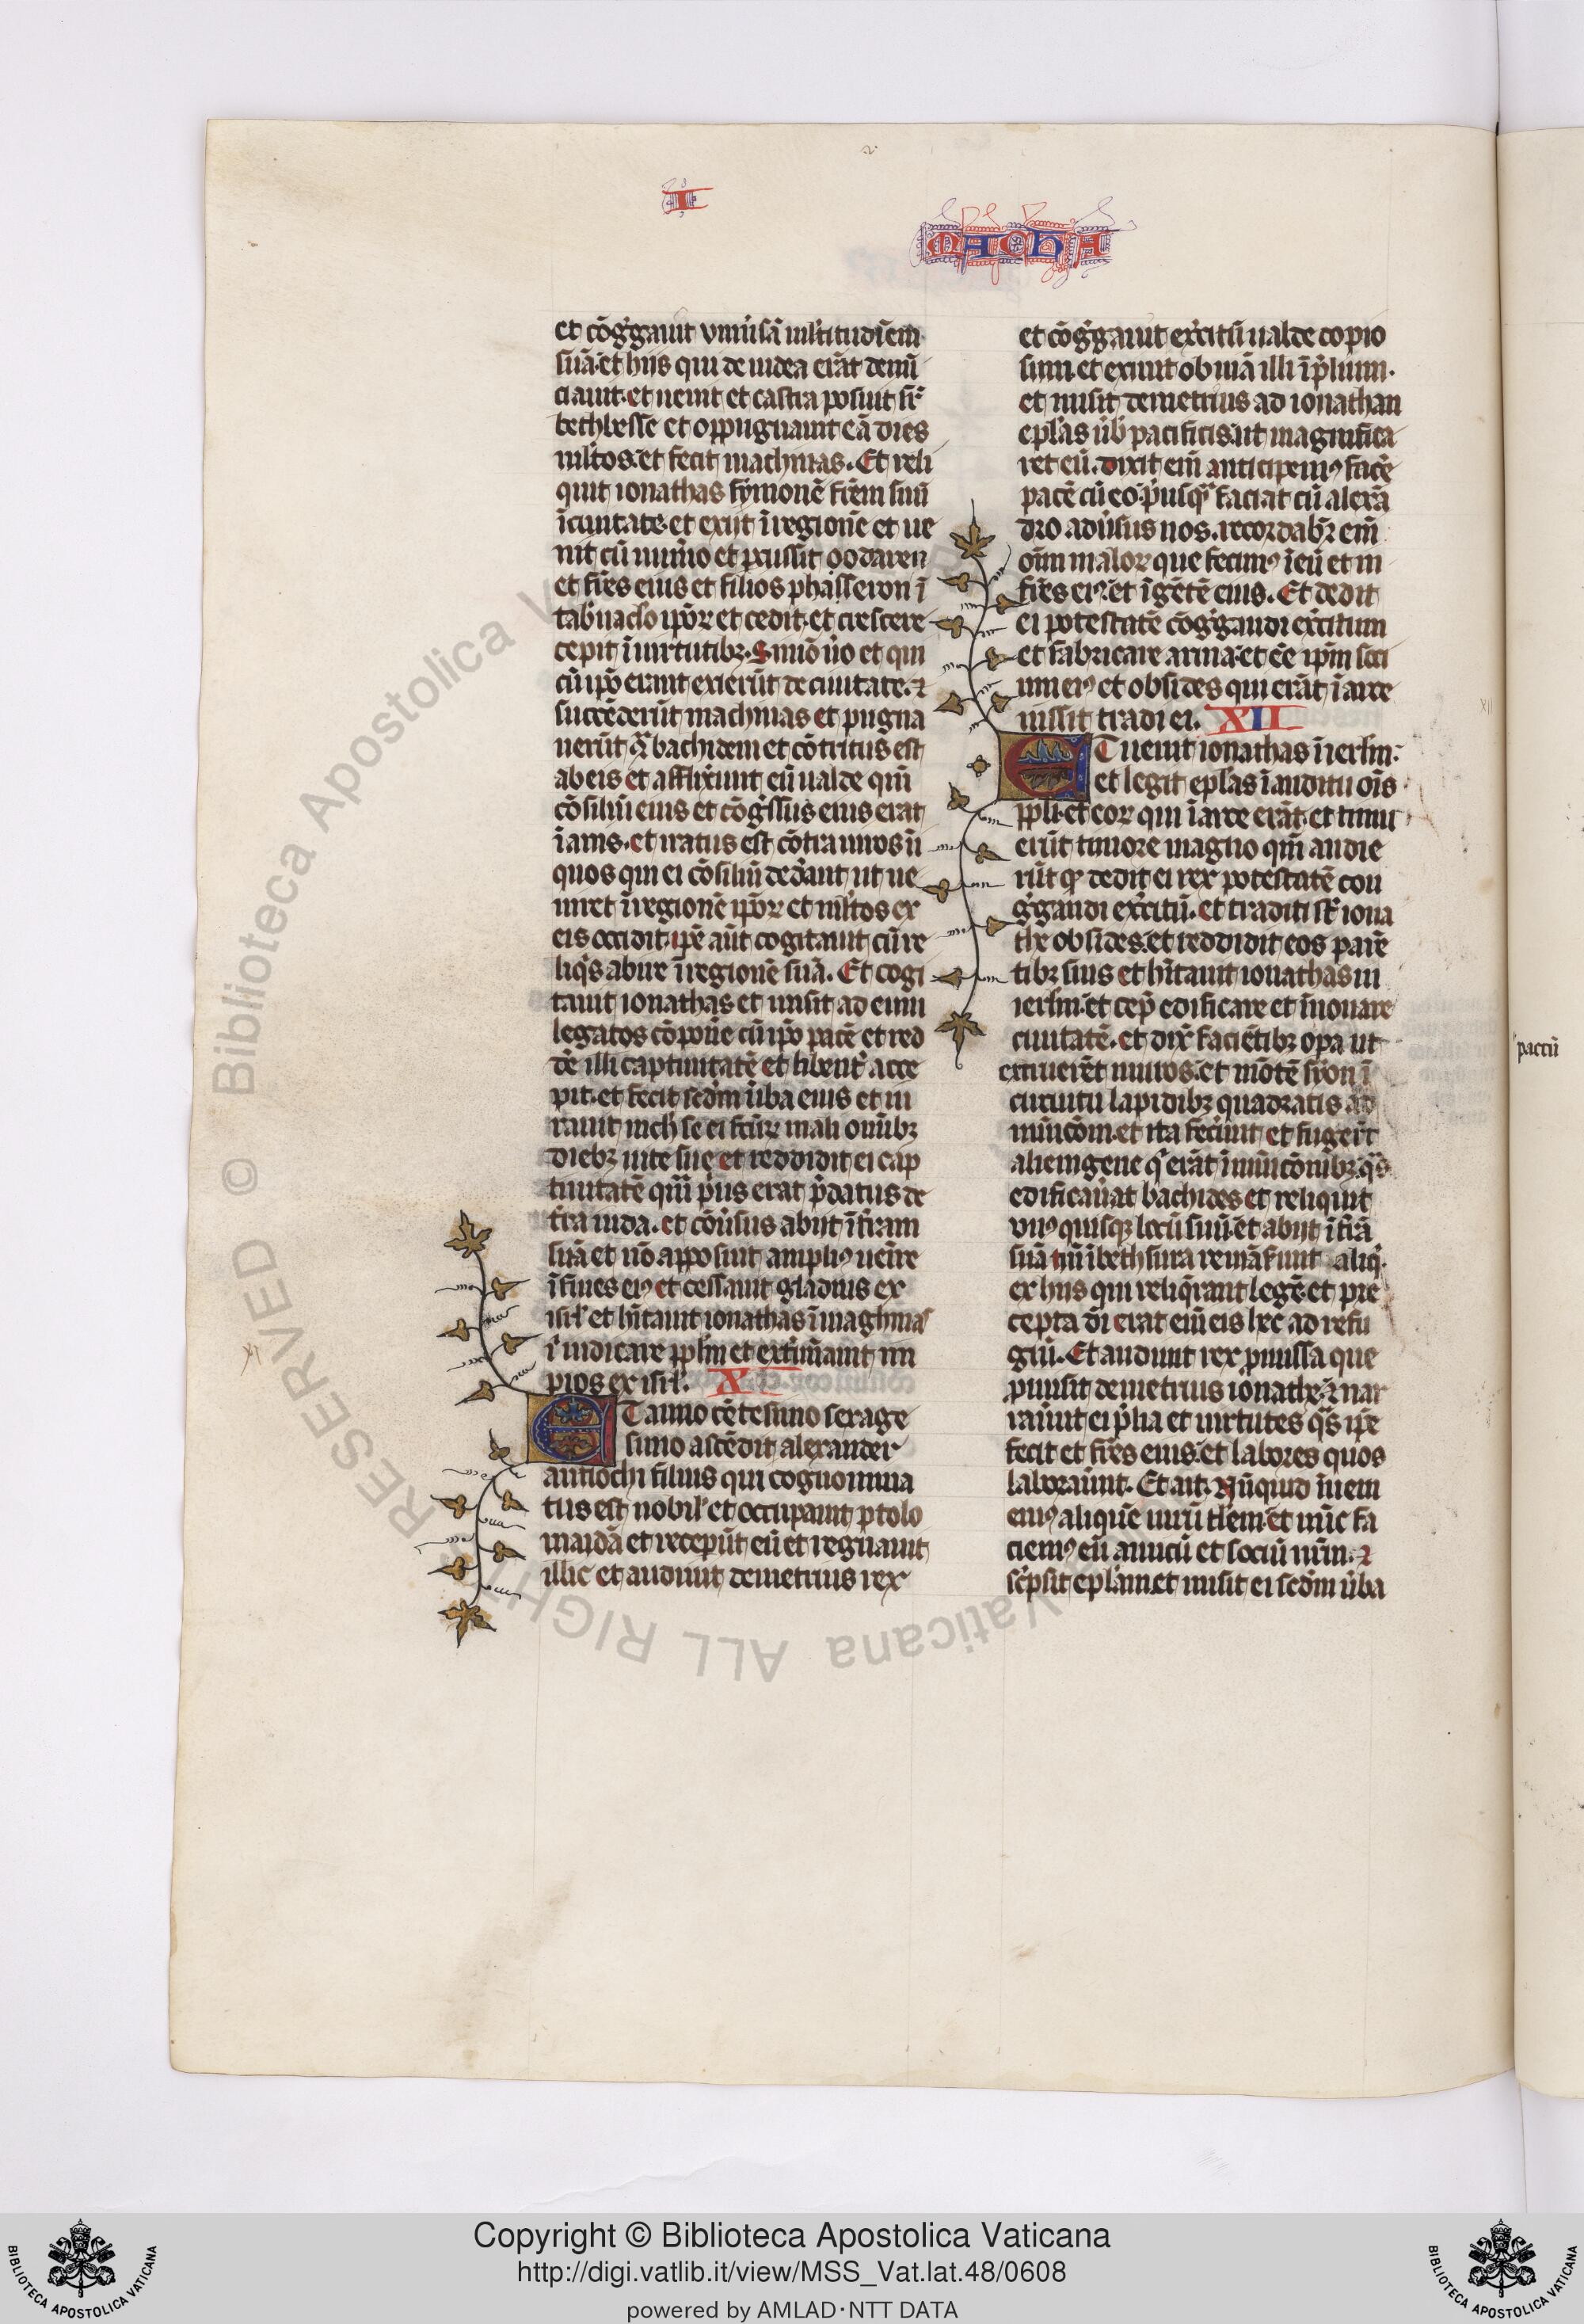 I
MACHA
et cōg̾gauit vniu̾sā ml̾titudīem
suā. et hiis qui de iudea erāt denū
ciauit. et uenit et castra posuit sr̄
bethbesse et oppugnauit eā dies
ml̾tos. et fecit machinas. Et reli
quit ionathas symonē fr̄em suū
ī ciuitate. et exijt ī regionē et ue
nit cū num̾o et p̱cussit odaren
et fr̄es eius et filios phasseron ī
tab̾naclo ip̄oꝝ et cedit. et crescere
cepit ī uirtutibꝫ. Simō u̾o et qui
cū ip̄o erant exierūt de ciuitate. ⁊
succēderūt machinas et pugna
uerūt ꝯ̄ bachidem et cōtritus est
ab eis et afflixerunt eū ualde qm̄
cōsiliū eius et cōg̾ssus eius erat
īanis. et iratus est cōtra uiros īi
quos qui ei cōsiliū ded̾ant ut ue
niret ī regionē ip̄oꝝ et ml̾tos ex
eis occidit. ip̄e aūt cogitauit cū re
liq̾s abire ī regionē suā. Et cogi
tauit ionathas et misit ad eum
legatos cōpon̾e cū ip̄o pacē et red
d̾e illi captiuitatē et libent̾ acce
pit. et fecit scd̄m u̾ba eius et iu
rauit nich̾ se ei fc̄uꝝ mali omībꝫ
diebꝫ uite sue et reddidit ei cap
tiuitatē quā p̾us erat p̄datus de
t̾ra iuda. et cōu̾sus abijt ī t̾ram
suā et nō apposuit ampliꝰ uenire
ī fines eiꝰ et cessauit gladius ex
isrl̾ et hītauit ionathas ī maghmas
ī iudicare ppl̄m et ext̾miauit im
pios ex isrl̾. XI
ET anno cētesimo sexage
simo ascēdit alexander
antiochi filius qui cognomina
tus est nobil̾ et occupauit ptolo
maidā et recep̱ūt eū et regnauit
illic et audiuit demetrius rex
et cōg̾gauit ex̾citū ualde copio
sum. et exiuit obuiā illi ī p̄lium.
et misit demetrius ad ionathan
epl̄as u̾b̾ pacificis. ut magnifica
ret eū. dixit em̄ anticipemꝰ fac̾e
pacē cū eo. p̾usq̄ faciat cū alexā
dro adu̾sus nos. recordabr̄ em̄
oīm maloꝝ que fecimꝰ ī eū et in
fr̄es eiꝰ. et ī gētē eius. Et dedit
ei potestatē cōg̾gandi ex̾citum
et fabricare arma. et eē ip̄m soci
um eiꝰ et obsides qui erāt ī arce
iussit tradi ei. XII
ET uenit ionathas ī ierl̄m.
et legit epl̄as ī auditu oīs
ppl̄i. et eoꝝ qui ī arce erāt. et timu
erūt timore magno qm̄ audie
rūt qꝫ dedit ei rex potestatē con
g̾gandi ex̾citū. et traditi sr̄ iona
the obsides. et reddidit eos parē
tibꝫ suis et hītauit ionathas in
ierl̄m. et cep̱ edificare et īnouare
ciuitatē. et dix̄ faciētibꝫ op̱a ut
extruerēt muros. et mōtē syon ī
circuitu lapidibꝫ quadratis ad
municōm. et ita fec̾unt et fuger̄t
alienigene q̾ erāt ī municōnibꝫ. q̾s
edificau̾at bachides et reliquit
vnꝰquisqꝫ locū suū. et abijt ī t̾rā
suā tm̄ ī bethsura remās̾unt aliq̾
ex hiis qui reliq̾rant legē. et pre
cepta dī erat em̄ eis hec ad refu
giū. Et audiuit rex p̱missa que
p̱misit demetrius ionathe. ⁊ nar
rau̾ūt ei p̄lia et uirtutes q̄s ip̄e
fecit et fr̄es eius. et labores quos
laborau̾ūt. Et ait. Nūquid īueni
emꝰ aliquē uirū tl̄em. et nūc fa
ciemꝰ eū amicū et sociū nr̄m. ⁊
sc̾psit epl̄am. et misit ei scd̄m u̾ba
XI
XII
pactū
© Biblioteca Apostolica Vaticana ALL RIGHTS RESERVED
Copyright © Biblioteca Apostolica Vaticana
http://digi.vatlib.it/view/MSS_Vat.lat.48/0608
powered by AMLAD·NTT DATA
BIBLIOTECA APOSTOLICA VATICANA
BIBLIOTECA APOSTOLICA VATICANA